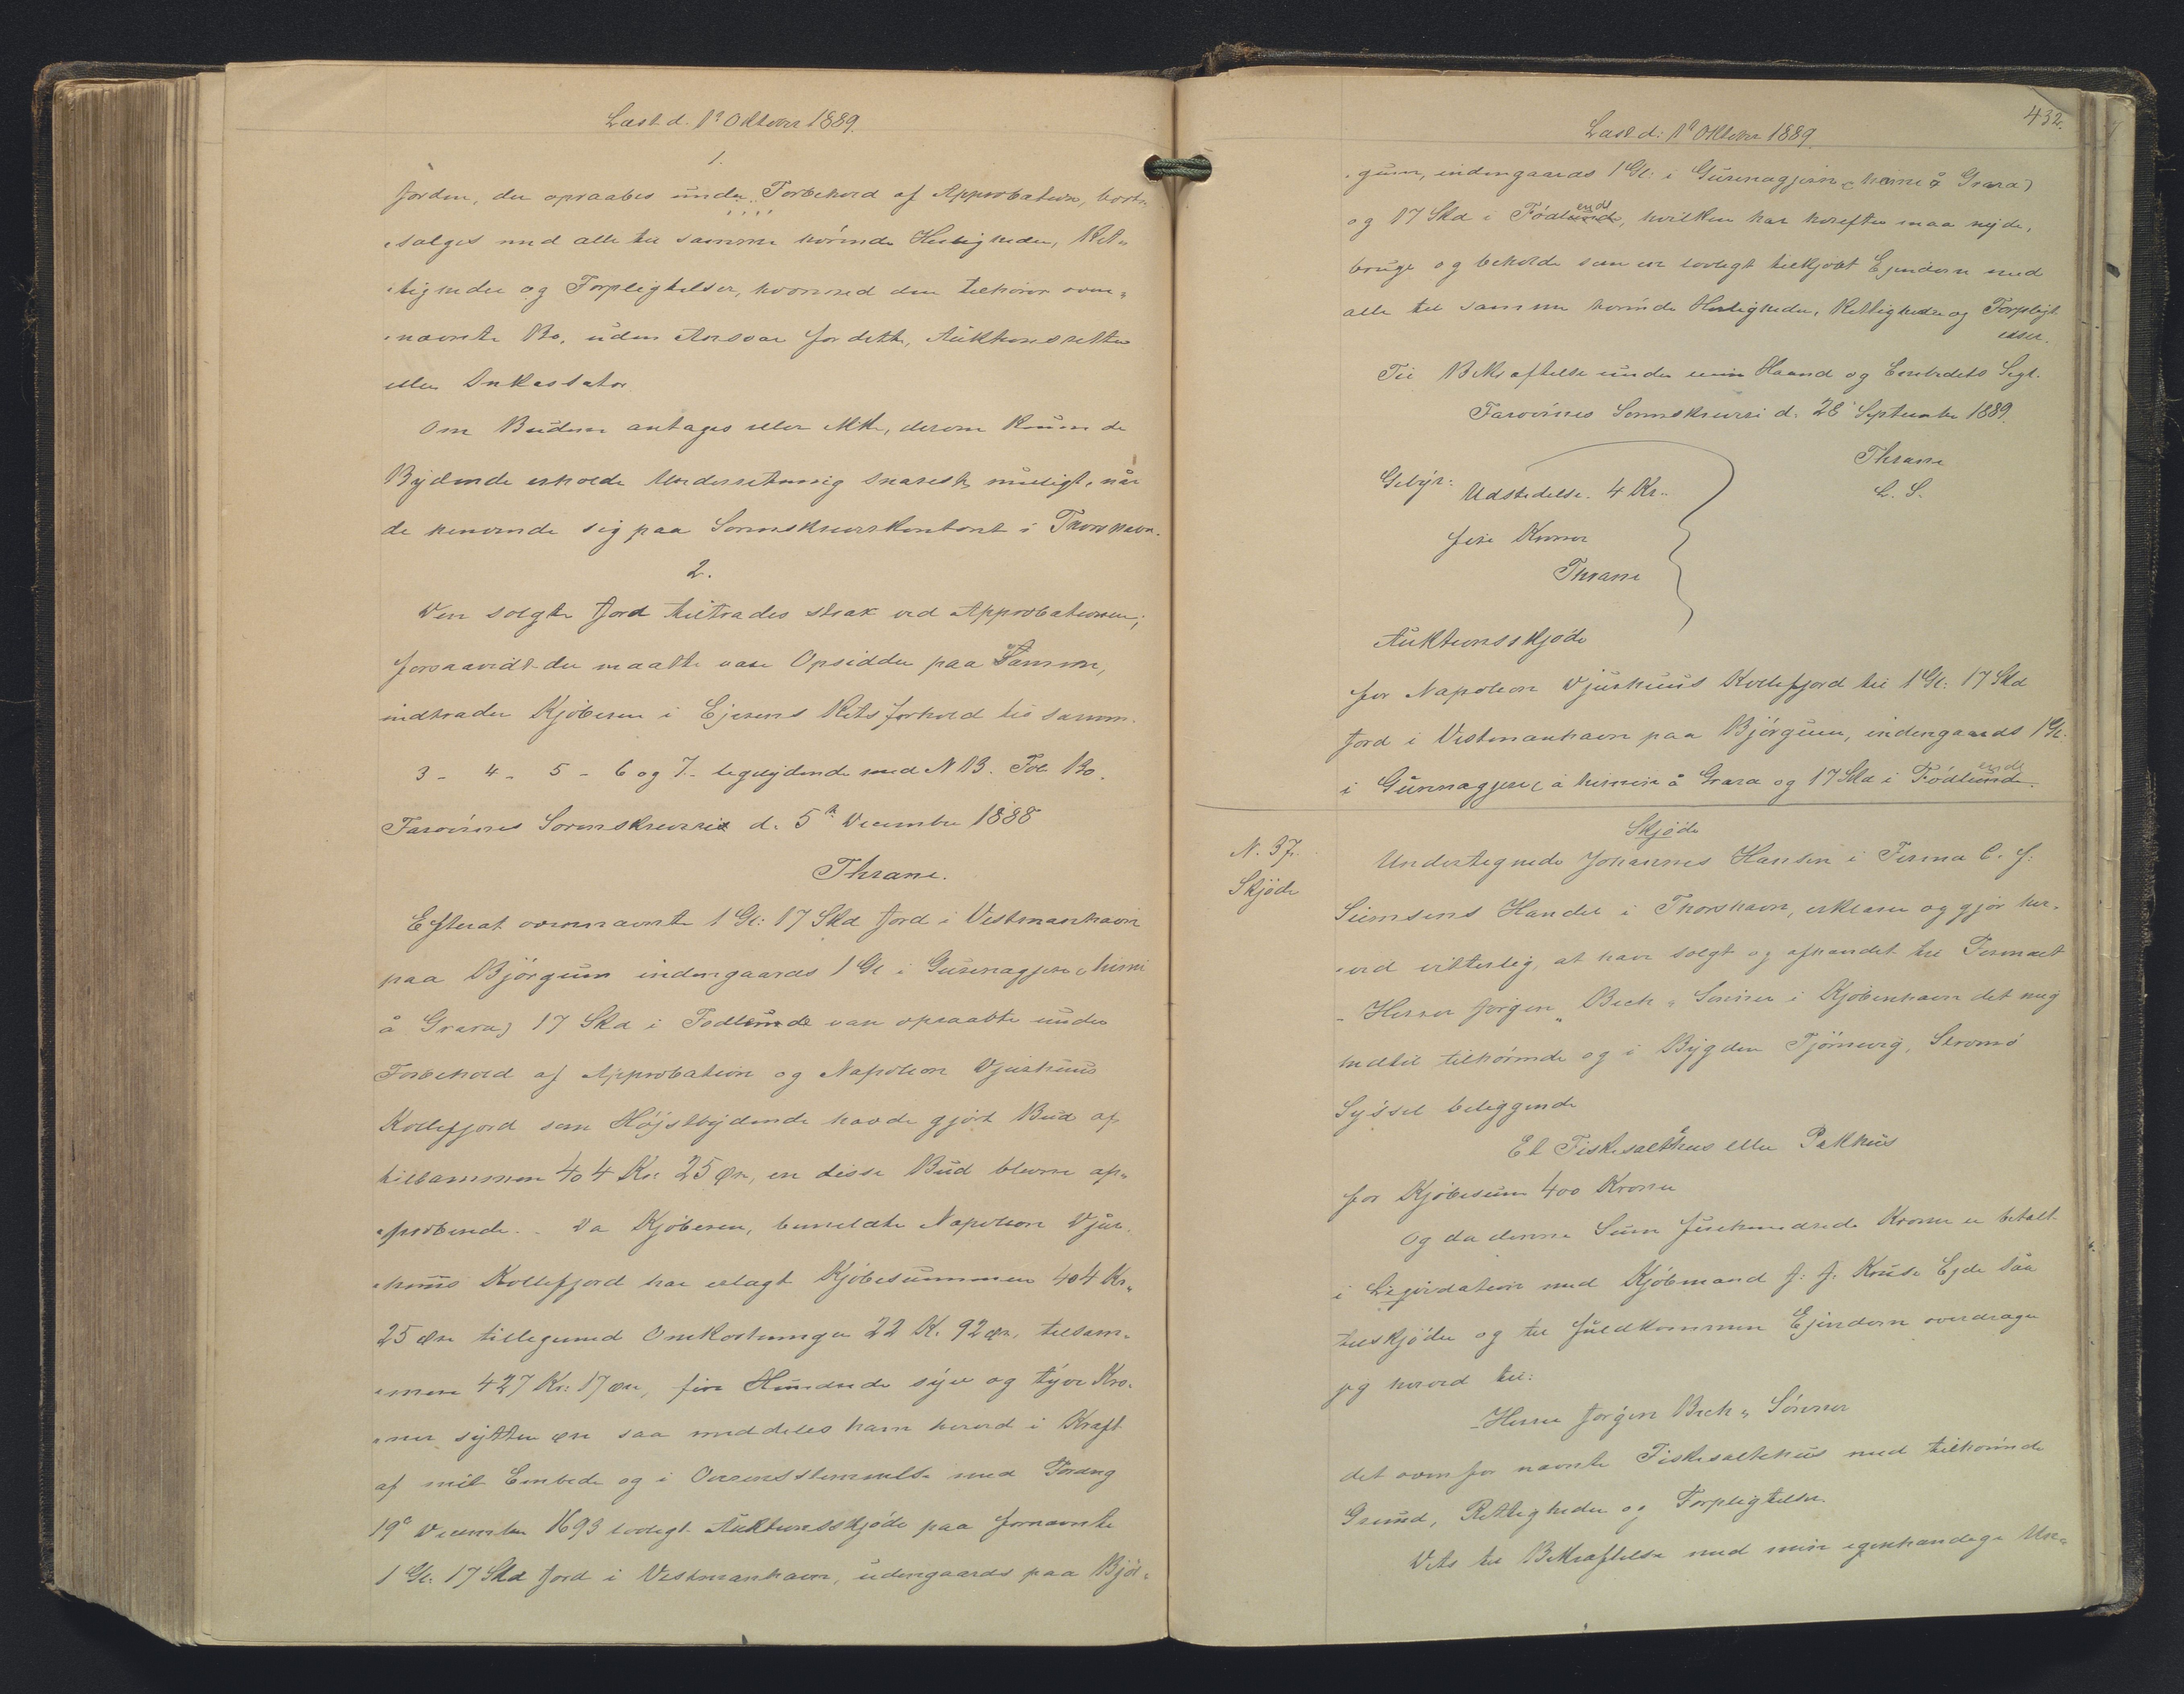 Læst d. 1ª Oktober 1889.
1.
Jorden, der opraabes under Forbehold af Approbation, bort-
sælges med alle til samme hørende Herligheder, Ret-
tigheder og Forpligtelser, hvormed den tilhører oven-
nævnte Bo, uden Ansvar for dette, Auktionsretten
eller Inkassator.
Om Budene antages eller ikke, derom kunne de
Bydende erholde Underretning snarest muligt, når
de henvende sig paa Sorenskriverkontoret i Thorshavn.
2.
Den solgte Jord tiltrædes strax ved Approbationen;
forsaavidt der maatte være Opsidder paa Samme,
indtræder Kjøberen i Ejerens Retsforhold til samme.
3 - 4 - 5 - 6 og 7 - ligelydende med N 13. Fol. 130.
Færøernes Sorenskriveri d. 5te December 1888
Thrane.
Efterat ovennævnte 1 Gl: 17 Skd Jord i Vestmanhavn
paa Bjørgum indengaards 1 Gl i Gursnagjere (heimi
å Grara) 17 Skd i Fødlunde var opraabte under
Forbehold af Approbation og Napoleon Djurhuus
Kollefjord som Højstbydende havde gjort Bud af
tilsammen 404 Kr. 25 Øre, ere disse Bud blevne ap-
proberede. Da Kjøberen, bemeldte Napoleon Djur-
huus Kollefjord har erlagt Kjøbesummen 404 Kr.
25 Øre tilligemed Omkostninger 22 K. 92 Øre, tilsam-
men 427 Kr: 17 Øre, fire Hundrede syv og tyve Kro-
ner sytten Øre saa meddeles ham herved i Kraft
af mit Embede og i Overensstemmelse med Fordng
19ª December 1693 lovligt Auktionsskjøde paa fornævnte
1 Gl: 17 Skd Jord i Vestmanhavn, udengaards paa Bjør-
432.
Læst d: 1ª Oktober 1889.
gum, indengaards 1 Gl: i Gursnagjere (heimi å Grara)
og 17 Skd i Fødlunde, hvilken han herefter maa nyde,
ende
bruge og beholde som sin lovligt tilkjøbt Ejendom med
alle til samme hørende Herligheder, Rettigheder og Forpligt
elser.
Til Bekræftelse under min Haand og Embedets Segl.
Færøernes Sorenskriveri d. 28 September 1889.
Thrane
L. S.
Gebyr:
Udstedelse. 4 Kr.
fire Kroner
Thrane
Auktionsskjøde
for Napoleon Djurhuus Kollefjord til 1 Gl: 17 Skd
Jord i Vestmanhavn paa Bjørgum, indengaards 1 Gl:
i Gursnagjere (å heimi å Grara og 17 Skd i Fødlunde.
ende
N. 37.
Skjøde
Skjøde
Undertegnede Johannes Hansen i Firma C. F.
Siemsens Handel i Thorshavn, erklærer og gjør her-
ved vitterlig, at have solgt og afhændet til Firmaet
Herrer Jørgen Bech & Sønner i Kjøbenhavn det mig
hidtil tilhørende og i Bygden Tjørnevig, Strømø
Syssel beliggende
Et Fiskesaltehus eller Pakhus
for Kjøbesum 400 Kroner
Og da denne Sum firehundrede Kroner er betalt
i Liqvidation med Kjøbmand J: J: Kruse Ejde saa
tilskjøder og til fuldkommen Ejendom overdrager
jeg herved til:
Herrer Jørgen Bech & Sønner
det ovenfor nævnte Fiskesaltehus med tilhørende
Grund, Rettigheder og Forpligtelser.
Dets til Bekræftelse med min egenhændige Un-